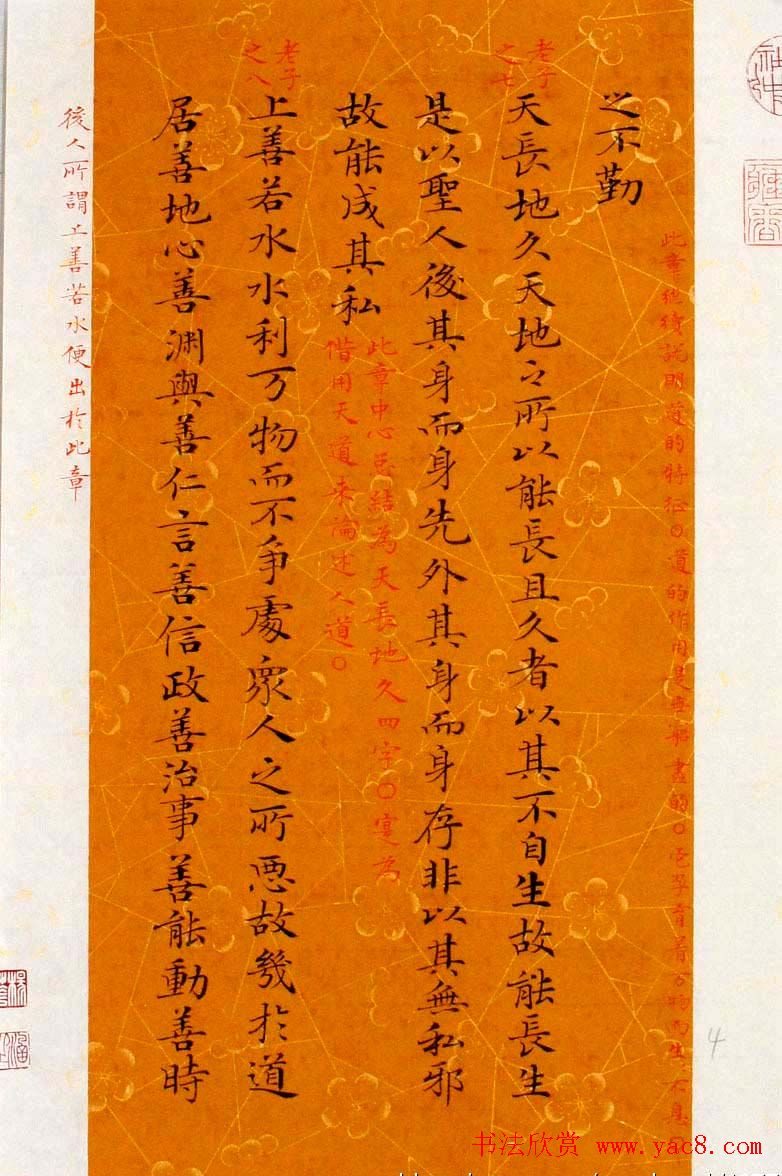 此章继续說明道的特征〇道的作用是無窮盡的〇它孕育着万物而生生不息〇
之不勤
老子
之七
天長地久天地之所以能長且久者以其不自生故能長生
是以聖人後其身而身先外其身而身存非以其無私邪
故能成其私
此章中心总結為天長地久四字〇寔為
借用天道來論述人道〇
老子
之八
上善若水水利万物而不爭處衆人之所惡故幾於道
居善地心善淵與善仁言善信政善治事善能動善時
後人所謂上善若水便出於此章
4
书法欣赏 www.yac8.com